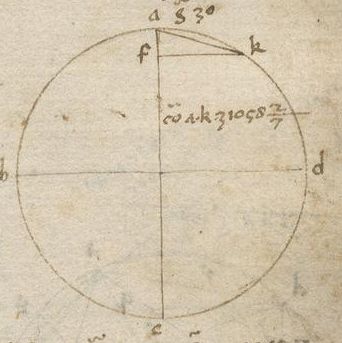 a 83°
f k
c̃o a.k 31058 2/7
b d
c